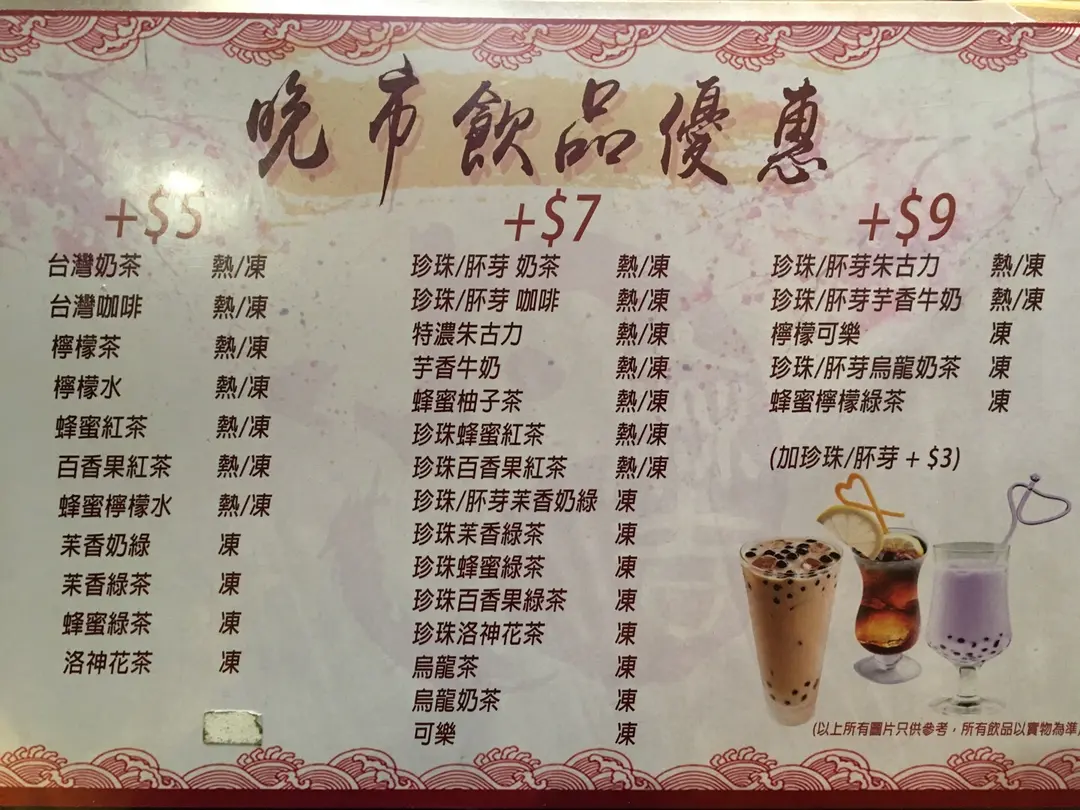 晚市飲品優惠
+$5
台灣奶茶 熱/凍
台灣咖啡 熱/凍
檸檬茶 熱/凍
檸檬水 熱/凍
蜂蜜紅茶 熱/凍
百香果紅茶 熱/凍
蜂蜜檸檬水 熱/凍
茉香奶綠 凍
茉香綠茶 凍
蜂蜜綠茶 凍
洛神花茶 凍
+$7
珍珠/胚芽 奶茶 熱/凍
珍珠/胚芽 咖啡 熱/凍
特濃朱古力 熱/凍
芋香牛奶 熱/凍
蜂蜜柚子茶 熱/凍
珍珠蜂蜜紅茶 熱/凍
珍珠百香果紅茶 熱/凍
珍珠/胚芽茉香奶綠 凍
珍珠茉香綠茶 凍
珍珠蜂蜜綠茶 凍
珍珠百香果綠茶 凍
珍珠洛神花茶 凍
烏龍茶 凍
烏龍奶茶 凍
可樂 凍
+$9
珍珠/胚芽朱古力 熱/凍
珍珠/胚芽芋香牛奶 熱/凍
檸檬可樂 凍
珍珠/胚芽烏龍奶茶 凍
蜂蜜檸檬綠茶 凍
(加珍珠/胚芽 + $3)
(以上所有圖片只供參考，所有飲品以實物為準)